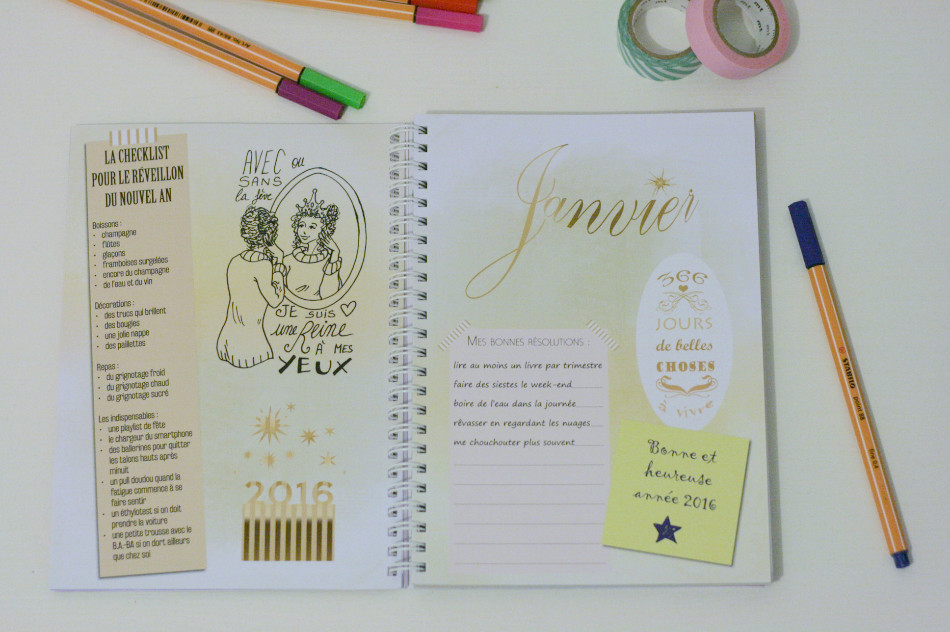 LA CHECKLIST
POUR LE RÉVEILLON
DU NOUVEL AN
Boissons :
• champagne
• flûtes
• glaçons
• framboises surgelées
• encore du champagne
• de l'eau et du vin
Décorations :
• des trucs qui brillent
• des bougies
• une jolie nappe
• des paillettes
Repas :
• du grignotage froid
• du grignotage chaud
• du grignotage sucré
Les indispensables :
• une playlist de fête
• le chargeur du smartphone
• des ballerines pour quitter
les talons hauts après
minuit
• un pull doudou quand la
fatigue commence à se
faire sentir
• un éthylotest si on doit
prendre la voiture
• une petite trousse avec le
B.A.-BA si on dort ailleurs
que chez soi
AVEC ou
SANS
la fève
JE SUIS
une Reine
À MES
YEUX
2016
Janvier
MES BONNES RÉSOLUTIONS :
lire au moins un livre par trimestre
faire des siestes le week-end
boire de l'eau dans la journée
rêvasser en regardant les nuages
me chouchouter plus souvent
366
JOURS
de belles
CHOSES
à vivre
Bonne et
heureuse
année 2016
STABILO
mt
mt